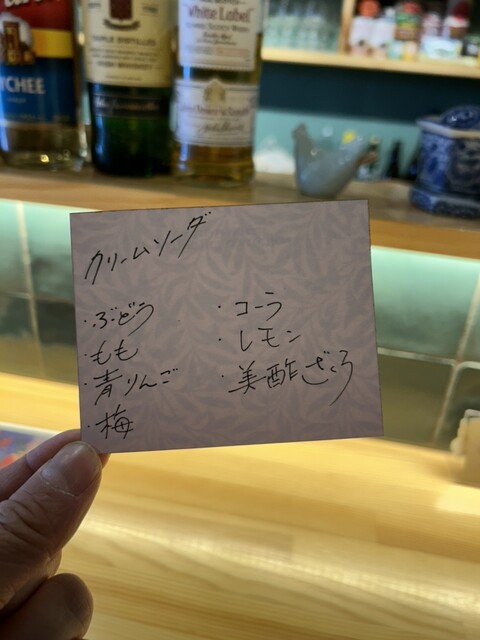 YCHEE
TRIPLE DISTILLED
White Label
クリームソーダ
・ぶどう
・もも
・青りんご
・梅
・コーラ
・レモン
・美酢ざくろ